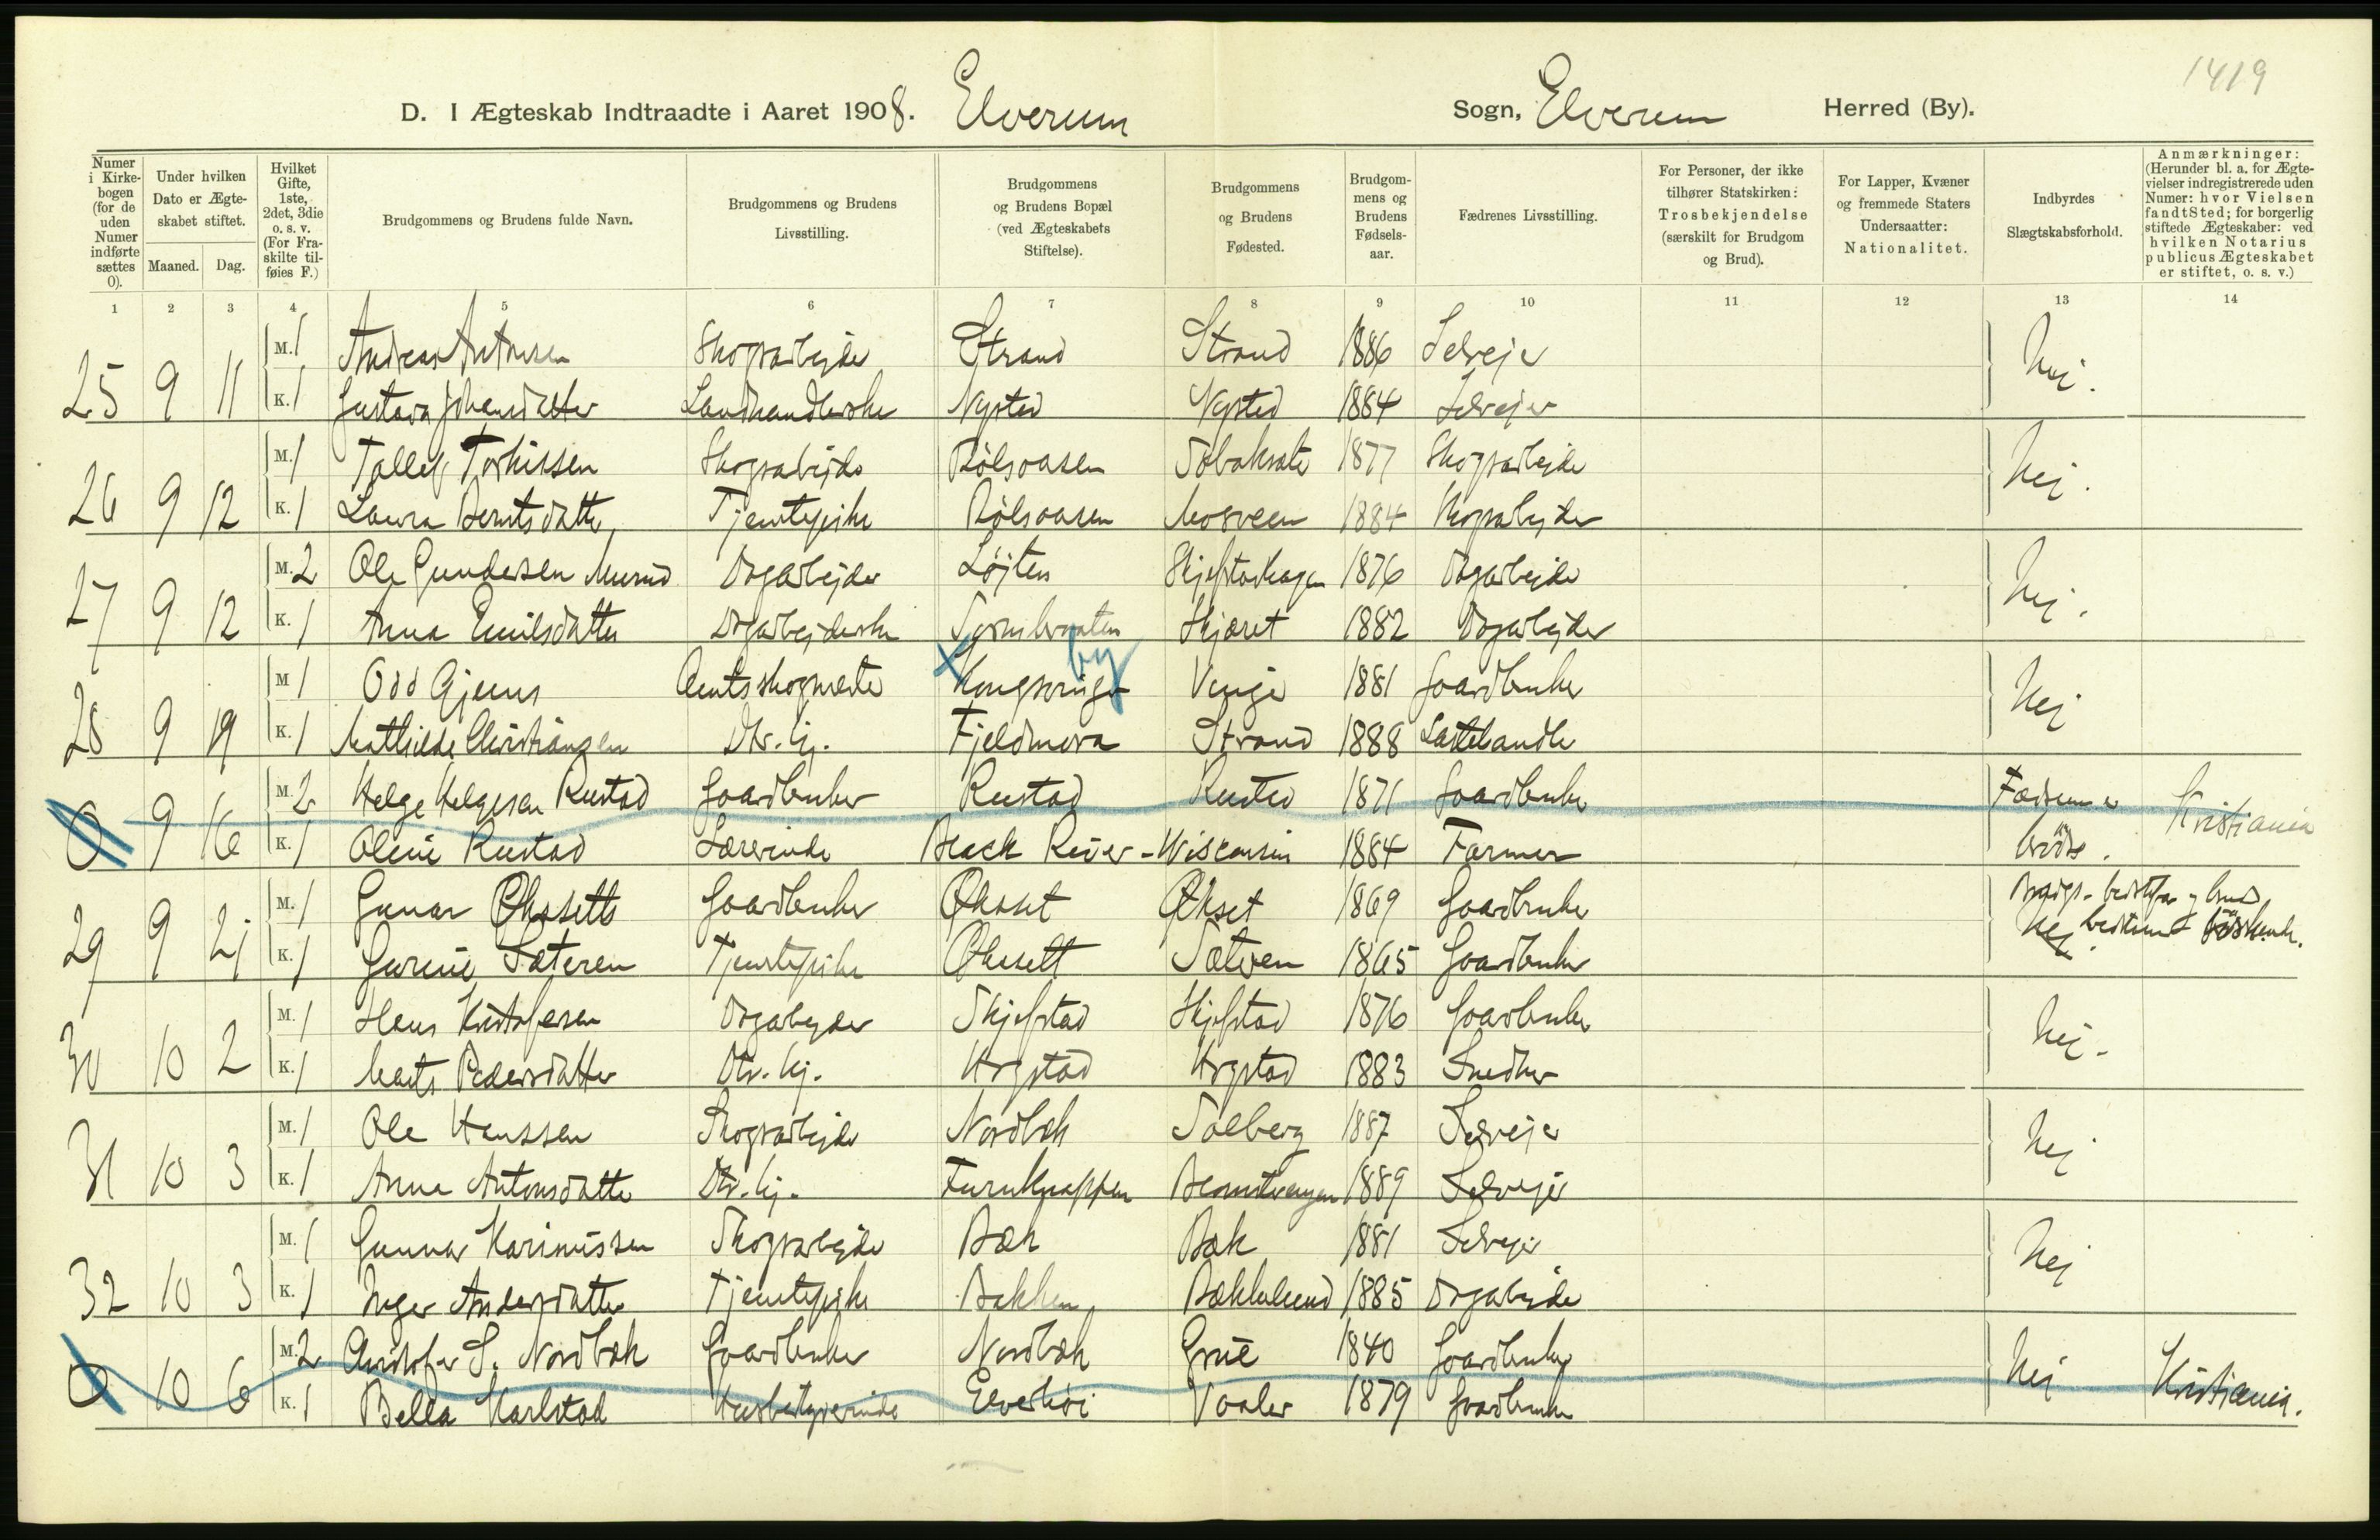 1419
D. I Ægteskab Indtraadte i Aaret 1908. Elverum Sogn, Elverum Herred (By).
Numer i Kirkebogen (for de uden Numer indførte sættes 0).
Under hvilken Dato er Ægteskabet stiftet.
Maaned. Dag.
Hvilket Gifte, 1ste, 2det, 3die o. s. v. (For Fraskilte tilføies F.)
Brudgommens og Brudens fulde Navn.
Brudgommens og Brudens Livsstilling.
Brudgommens og Brudens Bopæl (ved Ægteskabets Stiftelse).
Brudgommens og Brudens Fødested.
Brudgommens og Brudens Fødselsaar.
Fædrenes Livsstilling.
For Personer, der ikke tilhører Statskirken: Trosbekjendelse (særskilt for Brudgom og Brud).
For Lapper, Kvæner og fremmede Staters Undersaatter: Nationalitet.
Indbyrdes Slægtskabsforhold.
Anmærkninger: (Herunder bl. a. for Ægtevielser indregistrerede uden Numer: hvor Vielsen fandt Sted; for borgerlig stiftede Ægteskaber: ved hvilken Notarius publicus Ægteskabet er stiftet, o. s. v.)
1 2 3 4 5 6 7 8 9 10 11 12 13 14
M. 1 Andreas Antonsen Skogsarbejder Strand Strand 1886 Selvejer
25 9 11 K. 1 Gustava Johansdatter Landhandlerske Nysted Nysted 1884 Selvejer Nej.
M. 1 Tollef Torkilssen Skogsarbejder Rølsoasen 1877 Skogsarbejder
26 9 12 K. 1 Laura Berntsdatter Tjenestepike Rølsoasen Mosveen 1884 Skogsarbejder Nej.
M. 2 Ole Gundersen Dagarbejder Løjten Skjefstadhagen 1876 Dagarbejder
27 9 12 K. 1 Anna Emilsdatter Dagarbejderske Skjæret 1882 Dagarbejder Nej.
M 1 Odd Gjems Amtsskogmester Kongsvinger by 1881 Gaardbruker
28 9 19 K. 1 Mathilde Christiansen Dtr. hj. Fjeldmora Strand 1888 Nej
M. 2 Helge Helgesen Rustad Gaardbruker Rustad Rustad 1871 Gaardbruker
0 9 16 K. 1 Oline Rustad Lærerinde Black River - Wisconsin 1884 Farmer Fædrene er brødre. Kristiania
M. 1 Gunar Øksseth Gaardbruker Økset Økset 1869 Gaardbruker
29 9 21 K. 1 Gurine Sæteren Tjenestepike Øksett Sætren 1865 Gaardbruker Nej.
M. 1 Hans Kristofersen Dagarbejder Skjefstad Skjefstad 1876 Gaardbruker
30 10 2 K. 1 Marte Pedersdatter Dtr. hj. Hygstad Hygstad 1883 Snedker Nej.
M. 1 Ole Hanssen Skogsarbejder Nordbæk Solberg 1887 Selvejer
31 10 3 K. 1 Anna Antonsdatter Dtr. hj. Furuknappen 1889 Selvejer Nej
M. 1 Gunnar Karinussen Skogsarbejder Bæk Bæk 1881 Selvejer
32 10 3 K. 1 Inger Andersdatter Tjenestepike Bakken Bækkelund 1885 Dagarbejder Nej
M. 2 Christofer S. Nordbæk Gaardbruker Nordbæk Grue 1840 Gaardbruker
0 10 6 K. 1 Bella Karlstad Husbestyrerinde Elverhøi Vaaler 1879 Gaardbruker Nej Kristiania.